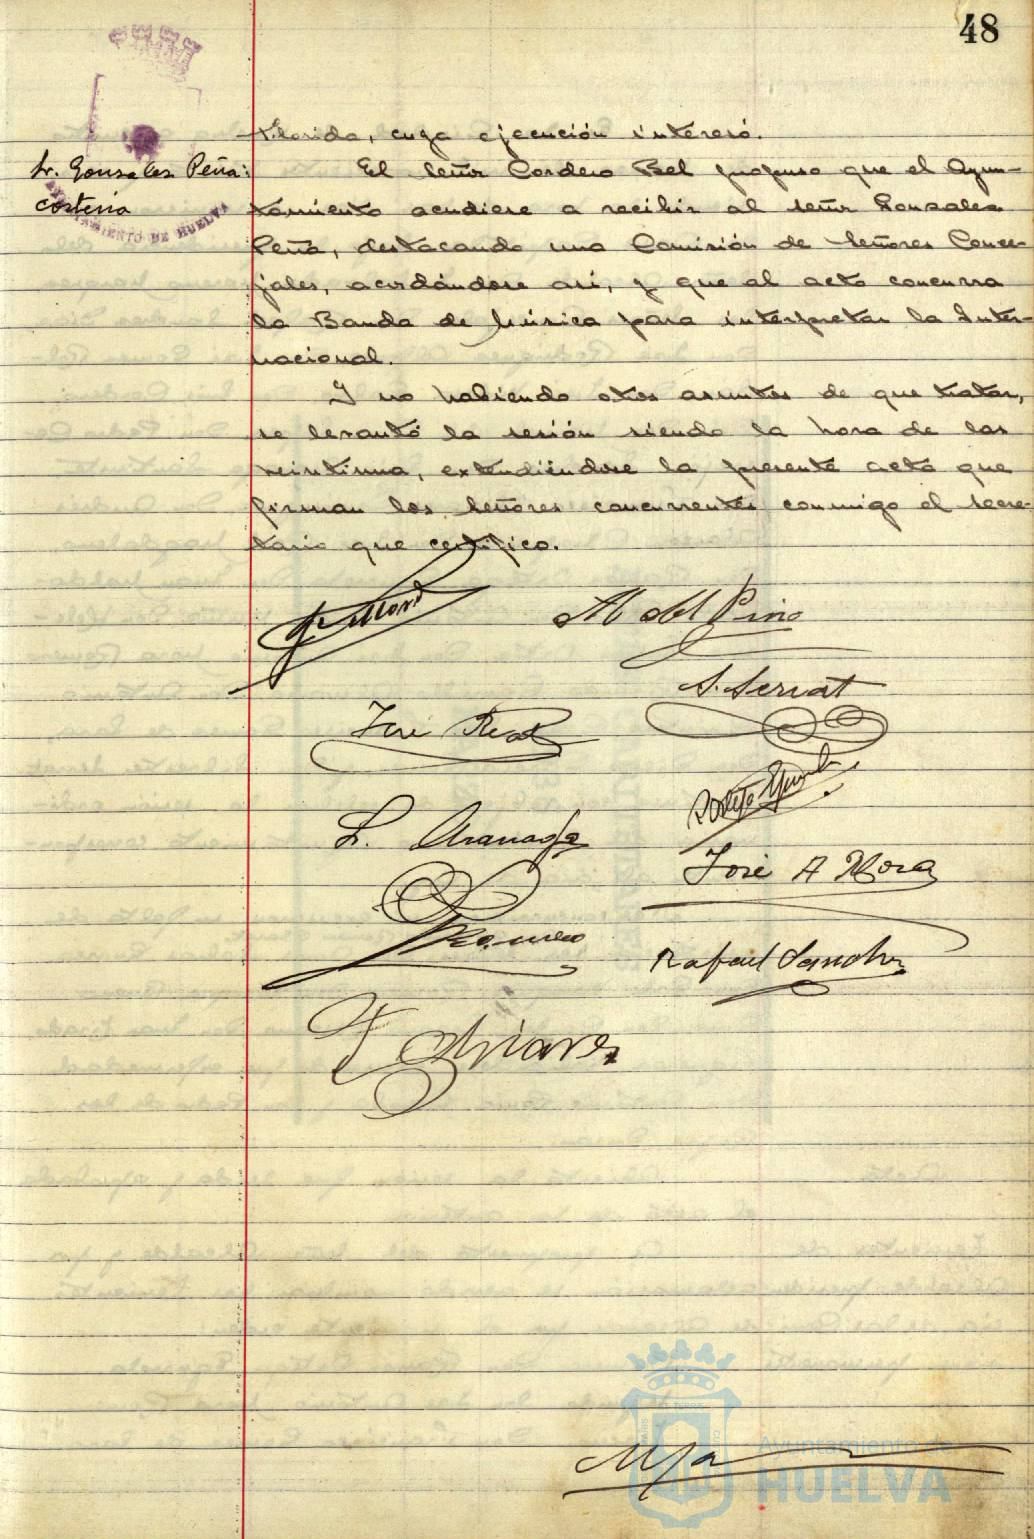 48
Florida, cuya ejecución interesó.
Sr. Gonzalez Peña:
cortesia
AYUNTAMIENTO DE HUELVA
El señor Cordero Bel propuso que el Ayun-
tamiento acudiese a recibir al señor Gonzalez
Peña, destacando una Comisión de señores Conce-
jales, acordándose asi, y que al acto concurra
la Banda de Música para interpretar la Inter-
nacional.
Y no habiendo otros asuntos de que tratar,
se levantó la sesión siendo la hora de las
veintiuna, extendiéndose la presente acta que
firman los señores concurrentes conmigo el secre-
tario que certifico.
M del Pino
S. Servat
José
José A Mora
Romero
Rafael Sanchez
Ayuntamiento de
HUELVA